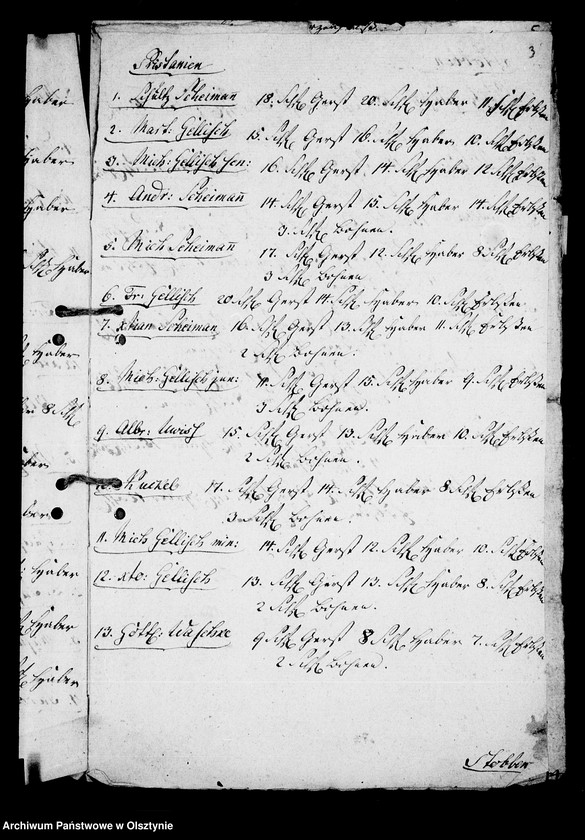 3
Pristanien
1. Schultz Scheiman 18. Schfl Gerst 20. Schfl Haber 11. Schfl Erbsen
2. Mart: Gellisch 15. Schfl Gerst 16. Schfl Haber 10. Schfl Erbsen
3. Mich: Gellisch sen: 16. Schfl Gerst, 14. Schfl Haber 12 Schfl Erbsen
4. Andr: Scheiman 14. Schfl Gerst 15. Schfl Haber 14. Schfl Erbsen
3. Schfl Bohnen.
5. Mich Scheiman 17. Schfl Gerst 12. Schfl Haber 8 Schfl Erbsen
3 Schfl Bohnen
6. Fr: Gellisch 20. Schfl Gerst 14. Schfl Haber 10. Schfl Erbsen
7. Scheiman 16. Schfl Gerst 13. Schfl Haber 11. Schfl Erbsen
2 Schfl Bohnen.
8. Mich: Gellisch jun: 11. Schfl Gerst 15. Schfl Haber 9. Schfl Erbsen
3 Schfl Bohnen.
9. Albr: 15. Schfl Gerst 13. Schfl Haber 10. Schfl Erbsen
2 Schfl Bohnen.
17. Schfl Gerst 14. Schfl Haber 8 Schfl Erbsen
3 Schfl Bohnen.
11. Mich Gellisch min: 14. Schfl Gerst 12. Schfl Haber 10. Schfl Erbsen
12. Gellisch 13. Schfl Gerst 13. Schfl Haber 8. Schfl Erbsen
2 Schfl Bohnen.
13. Gottl: 9 Schfl Gerst 8 Schfl Haber 7. Schfl Erbsen
2 Schfl Bohnen.
Stobben
Archiwum Państwowe w Olsztynie